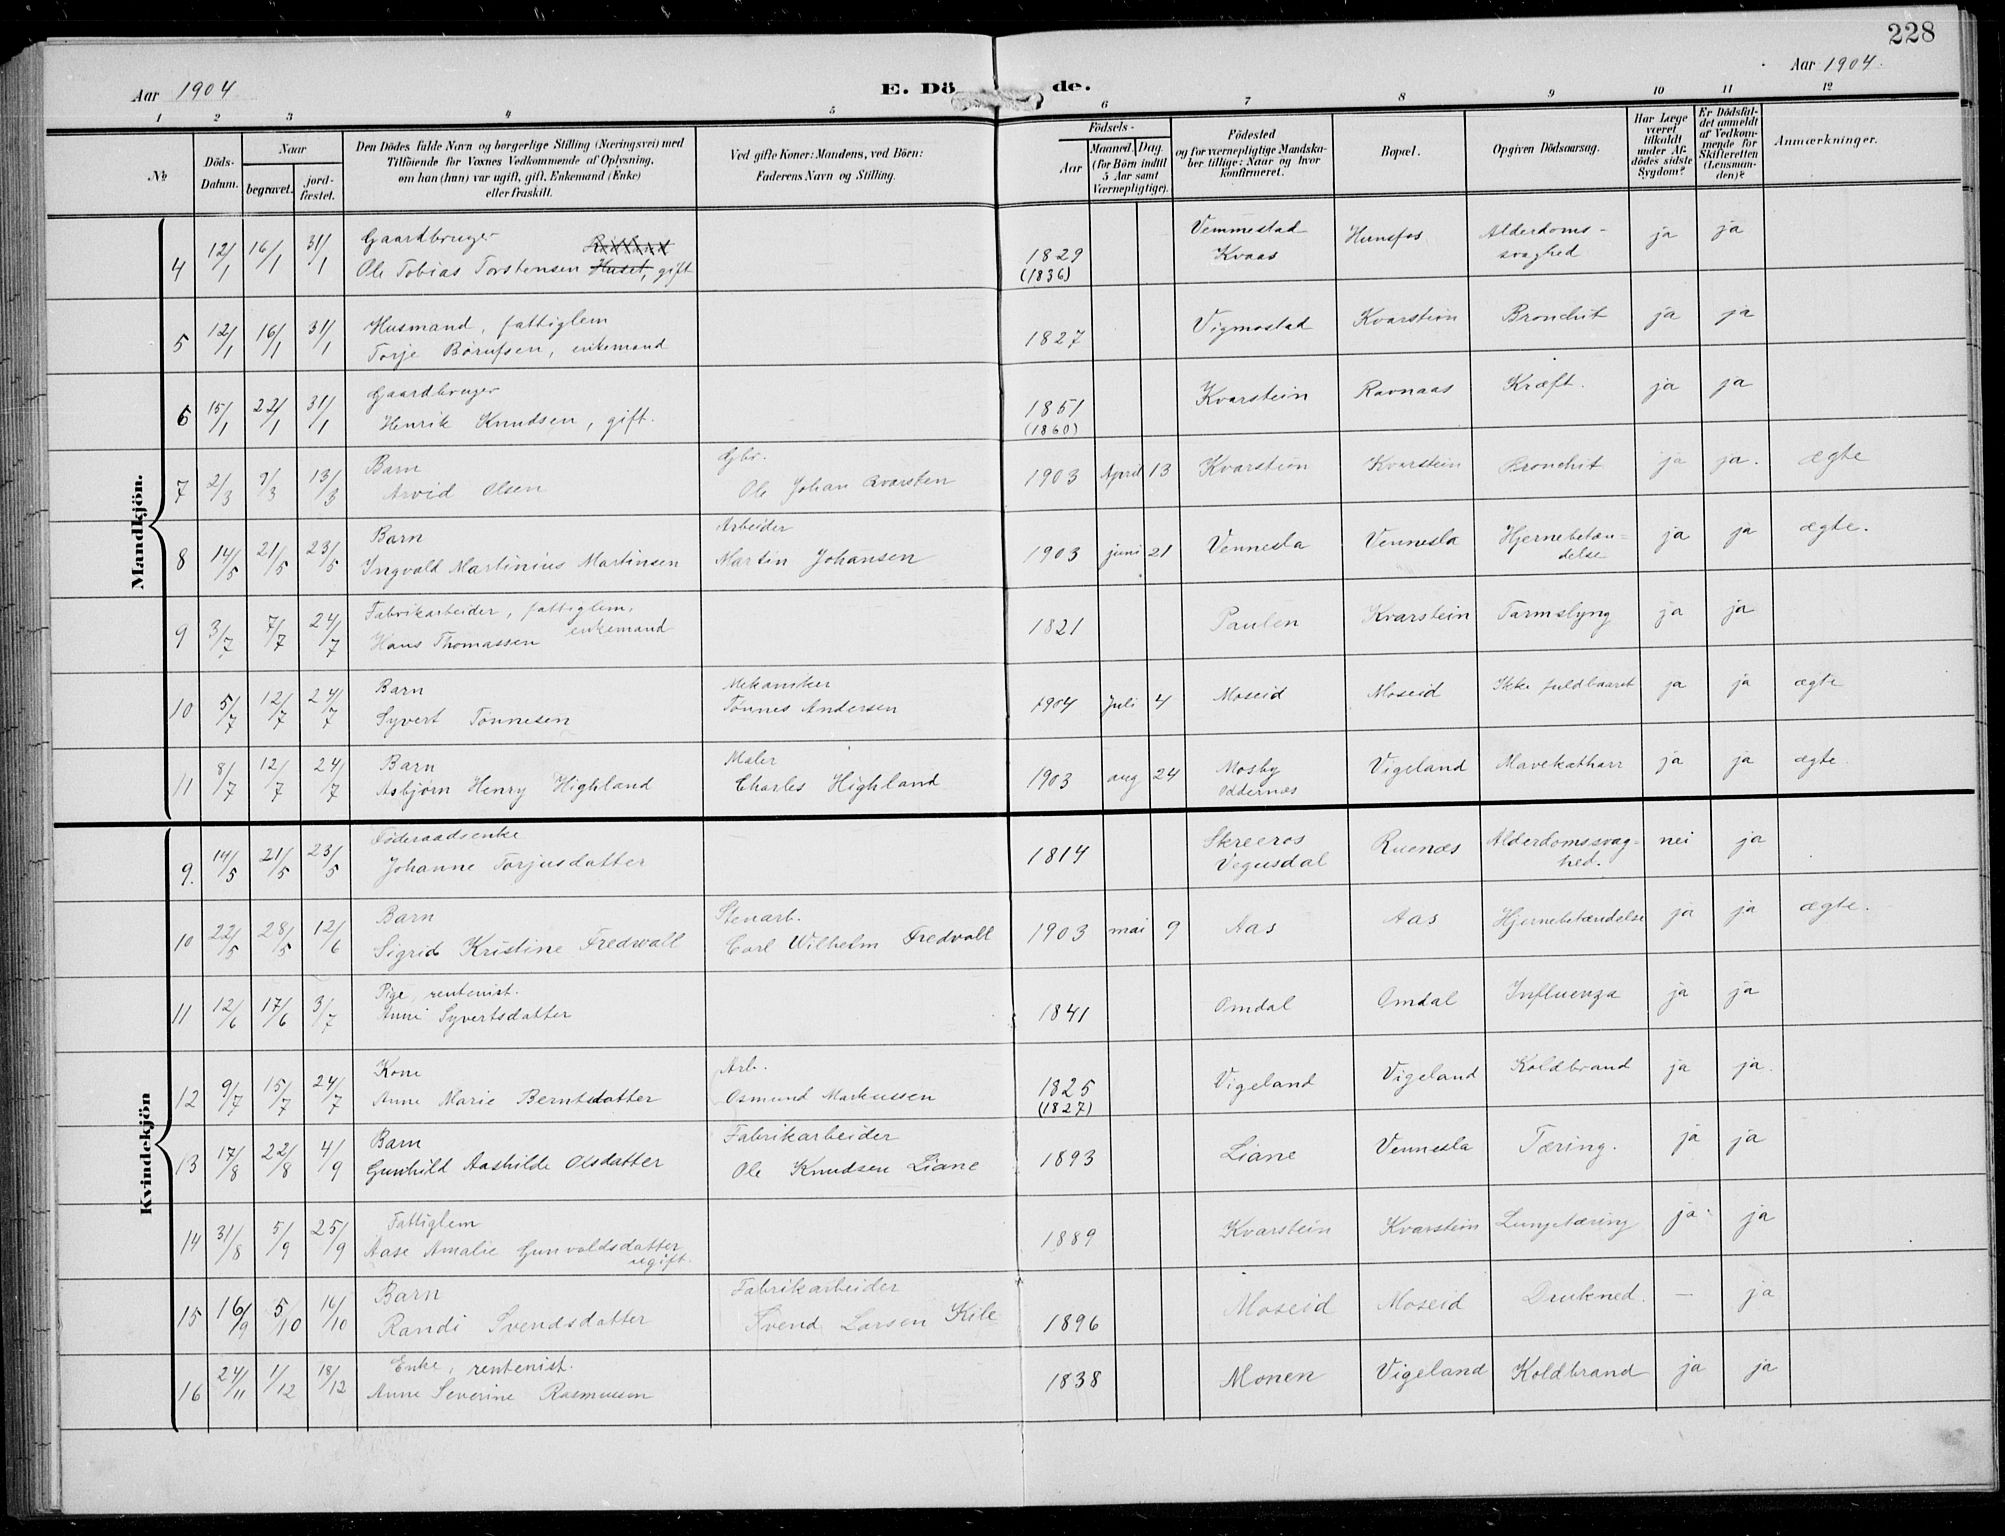 228
Aar 1904
E. Dö de.
Aar 1904.
1 2 3 4 5 6 7 8 9 10 11 12
No
Döds-Datum.
Naar
begravet.
jord-fæstet.
Den Dödes fulde Navn og borgerlige Stilling (Næringsvei) med
Tilföiende for Voxnes Vedkommende af Oplysning,
om han (hun) var ugift, gift, Enkemand (Enke)
eller fraskilt.
Ved gifte Koner: Mandens, ved Börn:
Faderens Navn og Stilling.
Födsels-
Aar
Maaned. Dag.
(for Börn indtil
5 Aar samt
Værnepligtige).
Födested
og for værnepligtige Mandska-
ber tillige: Naar og hvor
konfirmeret.
Bopæl.
Opgiven Dödsaarsag.
Har Læge
været
tilkaldt
under Af-
dödes sidste
Sygdom?
Er Dödsfal-
det anmeldt
af Vedkom-
mende for
Skifteretten
(Lensman-
den)?
Anmærkninger.
Mandkjön.
4 12/1 16/1 31/1 Gaardbruger
Ole Tobias Torstensen Huset, gift 1829 (1836) Vemmestad Kvaas Hunsfos Alderdoms-svaghed ja ja
5 12/1 16/1 31/1 Husmand, fattiglem
Torje Børufsen, enkemand 1827 Vigmostad Kvarstein Bronchit ja ja
6 15/1 22/1 31/1 Gaardbruger
Henrik Knudsen, gift. 1851 (1860) Kvarstein Ravnaas Kræft. ja ja
7 2/3 9/3 13/3 Barn
Arvid Olsen Gbr. Ole Johan Kvarsten 1903 April 13 Kvarstein Kvarstein Bronchit ja ja. ægte
8 14/5 21/5 23/5 Barn
Ingvald Martinius Martinsen Arbeider Martin Johansen 1903 juni 21 Vennesla Vennesla Hjernebetæn-delse ja ja ægte.
9 3/7 7/7 24/7 Fabrikarbeider, fattiglem,
enkemand
Hans Thomassen 1821 Paulen Kvarstein Tarmslyng ja ja
10 5/7 12/7 24/7 Barn
Syvert Tønnesen Mekaniker Tønnes Andersen 1904 Juli 4 Moseid Moseid Ikke fuldbaaret ja ja ægte
11 8/7 12/7 24/7 Barn
Asbjørn Henry Highland Maler Charles Highland 1903 aug 24 Mosby Oddernæs Vigeland Mavekatharr ja ja ægte.
Kvindekjön
9. 14/5 21/5 23/5 Føderaadsenke
Johanne Torjusdatter 1814 Skreeros Vegusdal Ruenæs Alderdomssvag-hed. nei ja
10 22/5 28/5 12/6 Barn
Sigrid Kristine Fredwall Stenarb. Carl Wilhelm Fredvall 1903 mai 9 Aas Aas Hjernebetændelse ja ja ægte.
11 12/6 17/6 3/7 Pige, rentenist.
Anne Syvertsdatter 1841 Omdal Omdal Influenza ja ja
12 9/7 15/7 24/7 Kone
Anne Marie Berntsdatter Arb. Osmund Markussen 1825 (1827) Vigeland Vigeland Koldbrand ja ja.
13 17/8 22/8 4/9 Barn
Gunhild Aashilde Olsdatter Fabrikarbeider Ole Knudsen Liane 1893 Liane Vennesla Tæring. ja ja
14 31/8 5/9 25/9 Fattiglem
Aase Amalie Gunvaldsdatter
ugift. 1889 Kvarstein Kvarstein Lungetæring ja ja
15 16/9 5/10 16/10 Barn
Randi Svendsdatter Fabrikarbeider Svend Larsen Kile 1896 Moseid Moseid Drukned. — ja
16 24/11 1/12 18/12 Enke, rentenist.
Anne Severine Rasmussen 1838 Monen Vigeland Koldbrand ja ja